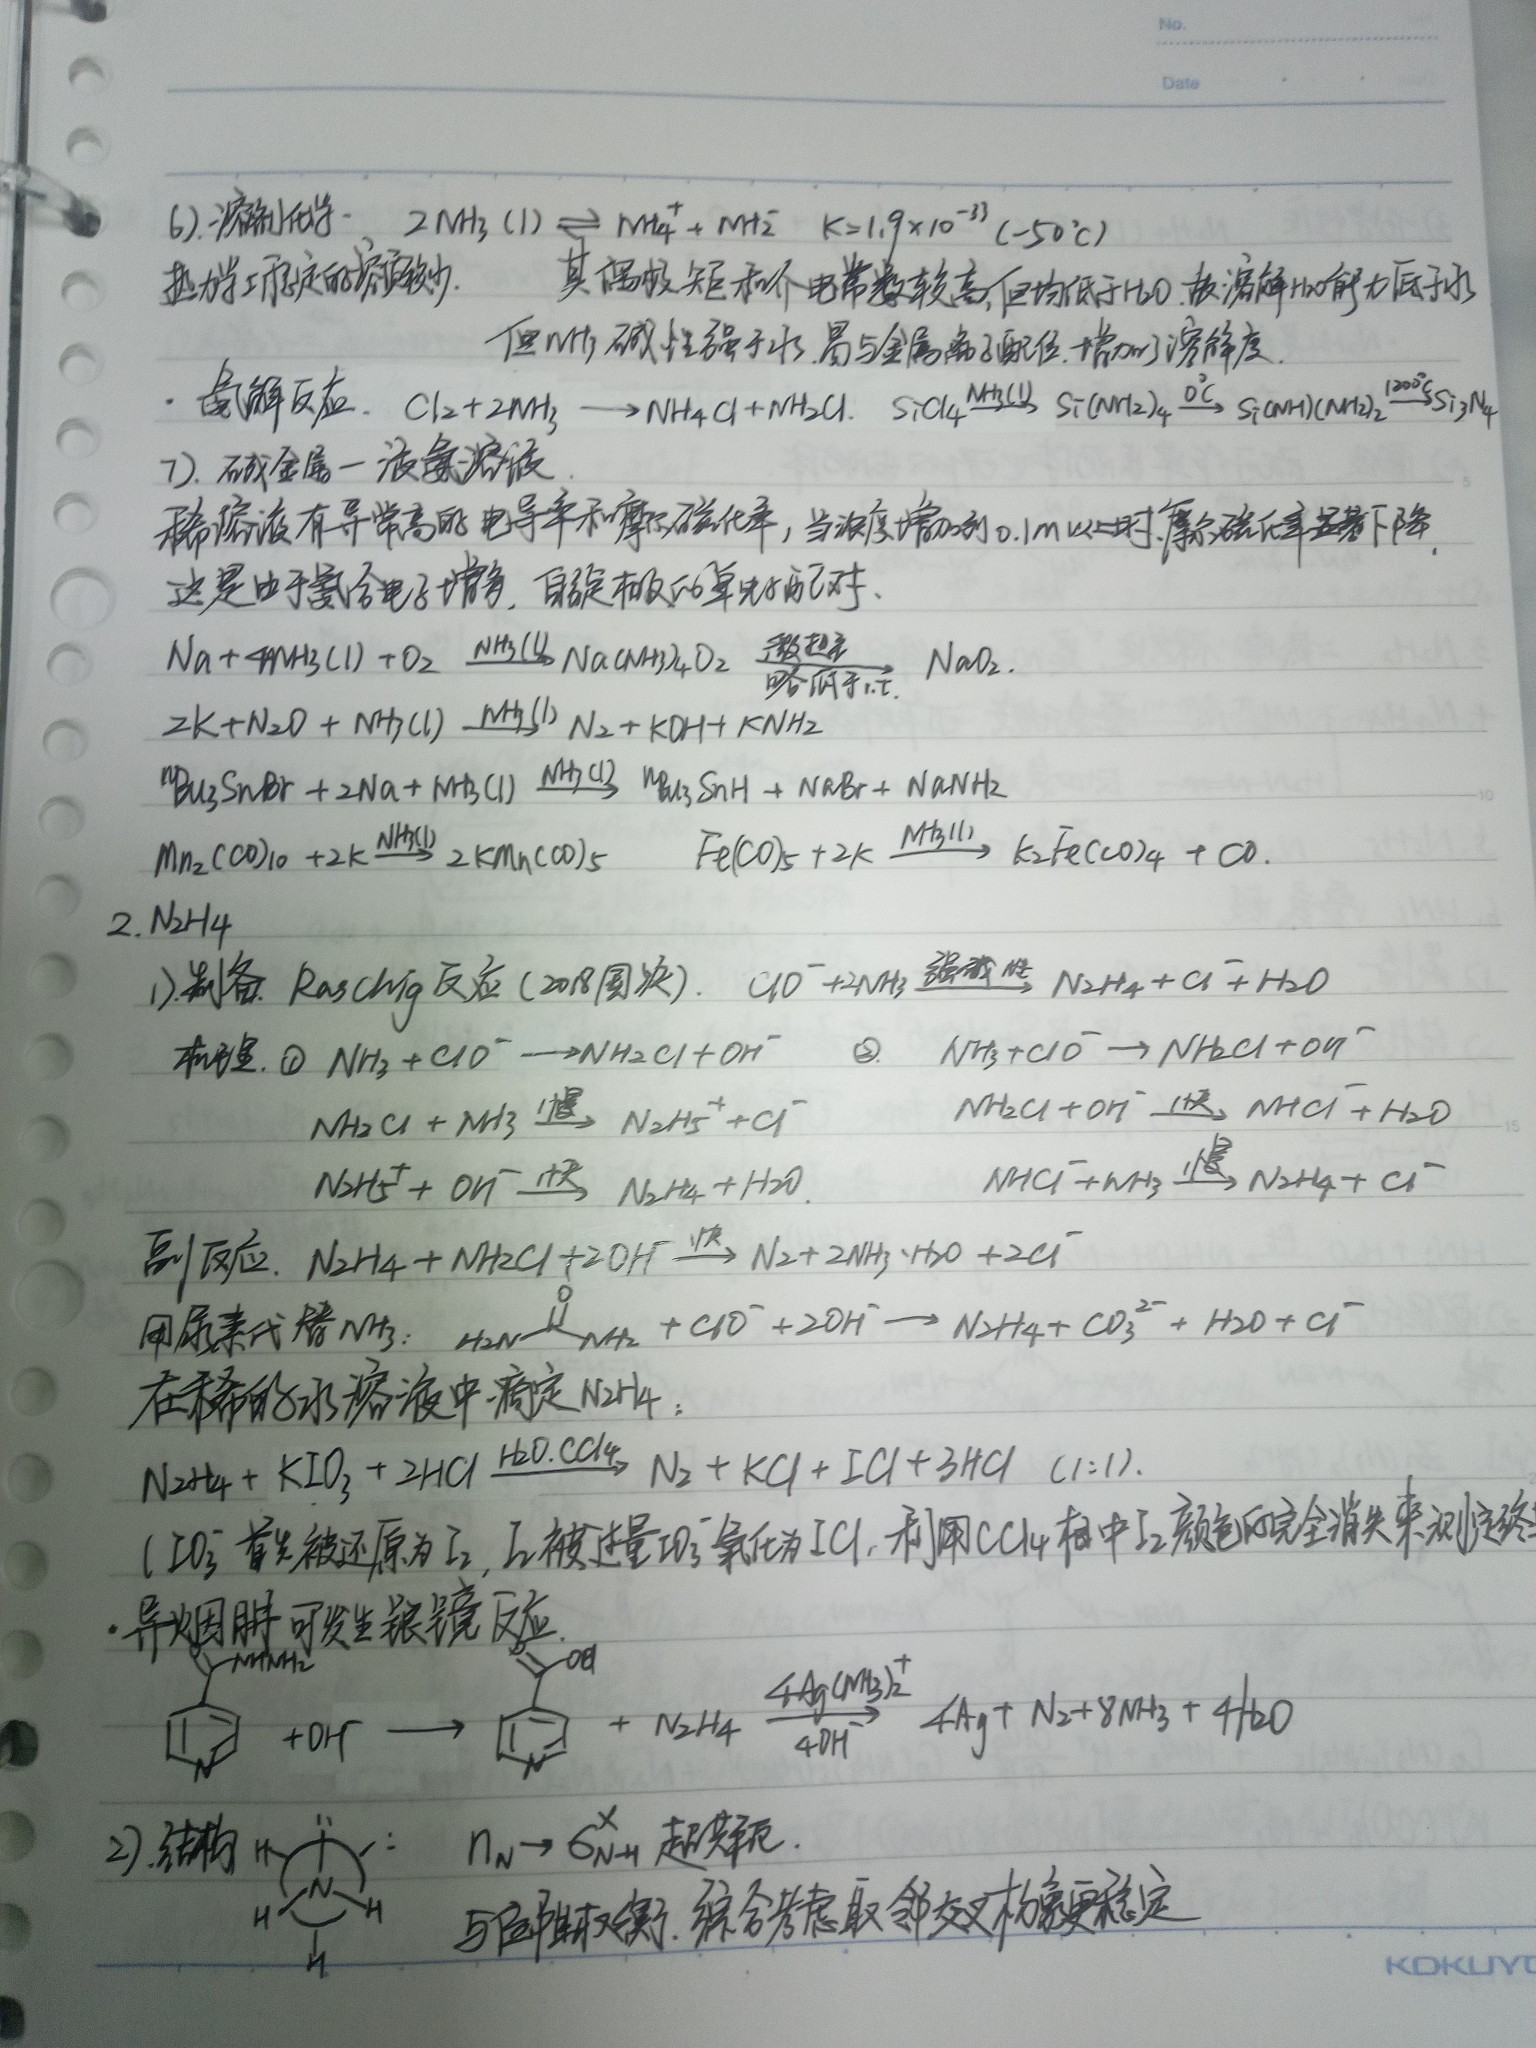 No.
Date
6). 溶剂化学. 2NH3 (l) ⇌ NH4+ + NH2- K=1.9×10^-33 (-50℃)
热力学上稳定的溶质较少. 其偶极矩和介电常数较高, 但均低于H2O. 故溶解H2O能力低于水
但NH3碱性强于水. 易与金属离子配位. 增加了溶解度.
· 氨解反应. Cl2+2NH3 → NH4Cl+NH2Cl. SiCl4 →[NH3(l)] Si(NH2)4 →[0℃] Si(NH)(NH2)2 →[1200℃] Si3N4
7). 碱金属—液氨溶液.
稀溶液有异常高的电导率和摩尔磁化率, 当浓度增加到0.1m以上时. 摩尔磁化率显著下降.
这是由于氨合电子增多, 自旋相反的单电子配对.
Na+4NH3(l)+O2 →[NH3(l)] Na(NH3)4O2 →[略低于r.t.] NaO2.
2K+N2O+NH3(l) →[NH3(l)] N2+KOH+KNH2
nBu3SnBr+2Na+NH3(l) →[NH3(l)] nBu3SnH+NaBr+NaNH2
Mn2(CO)10+2K →[NH3(l)] 2KMn(CO)5 Fe(CO)5+2K →[NH3(l)] K2Fe(CO)4+CO.
2. N2H4
1). 制备. Raschig反应(2018国决). ClO-+2NH3 →[强碱性] N2H4+Cl-+H2O
机理. ① NH3+ClO- → NH2Cl+OH- ② NH3+ClO- → NH2Cl+OH-
NH2Cl+NH3 →[慢] N2H5++Cl- NH2Cl+OH- →[快] NHCl-+H2O
N2H5++OH- →[快] N2H4+H2O. NHCl-+NH3 →[慢] N2H4+Cl-
副反应. N2H4+NH2Cl+2OH- →[快] N2+2NH3·H2O+2Cl-
用尿素代替NH3: H2N O NH2 +ClO-+2OH- → N2H4+CO3^2-+H2O+Cl-
在稀的水溶液中滴定N2H4:
N2H4+KIO3+2HCl →[H2O.CCl4] N2+KCl+ICl+3H2O (1:1).
(IO3-首先被还原为I2, I2被过量IO3-氧化为ICl. 利用CCl4相中I2颜色的完全消失来判定终
· 异烟肼可发生银镜反应.
O NHNH2 N +OH- → O O- N + N2H4 →[4Ag(NH3)2+ 4OH-] 4Ag+N2+8NH3+4H2O
2). 结构 H N H H H : nN→σ*N-H 超共轭.
与位阻权衡. 综合考虑取邻交叉构象更稳定
KOKUYO